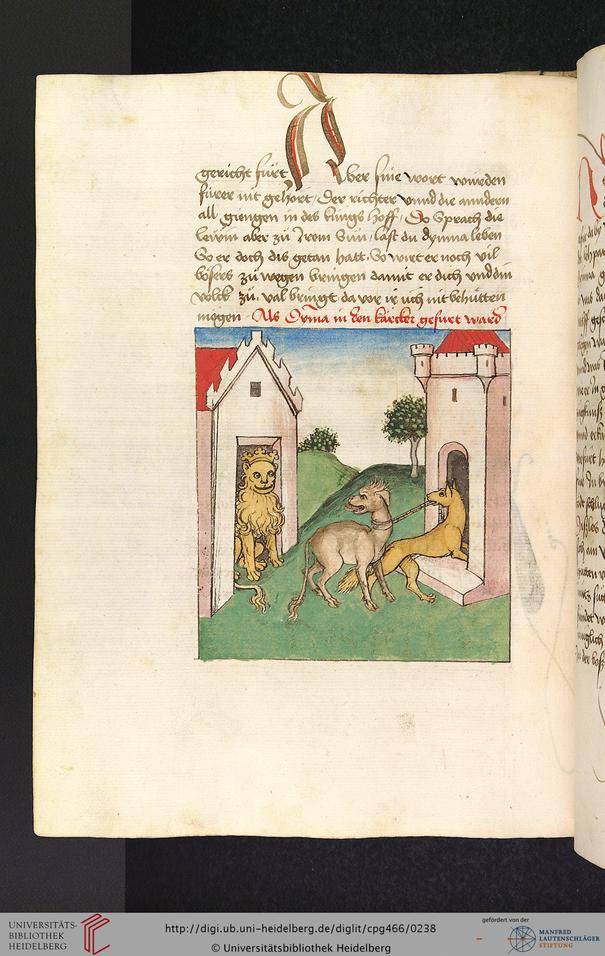 gericht fürt Aber sine wort wurden
fürer nit gehört / Der richter vnnd die anndern
all giengen in des künigs hoff / Do sprach die
leẅin aber zü Irem Sün / last du dymna leben
So er doch dis getan hatt So wirt er noch vil
bösers zü wegen bringen damit er dich vnd din
volck zü val bringt da vor ir üch nit behütten
mögen. Als Dyma in den kärcker gefürt ward
UNIVERSITÄTS-
BIBLIOTHEK
HEIDELBERG
http://digi.ub.uni-heidelberg.de/diglit/cpg466/0238
© Universitätsbibliothek Heidelberg
gefördert von der
MANFRED
LAUTENSCHLÄGER
STIFTUNG